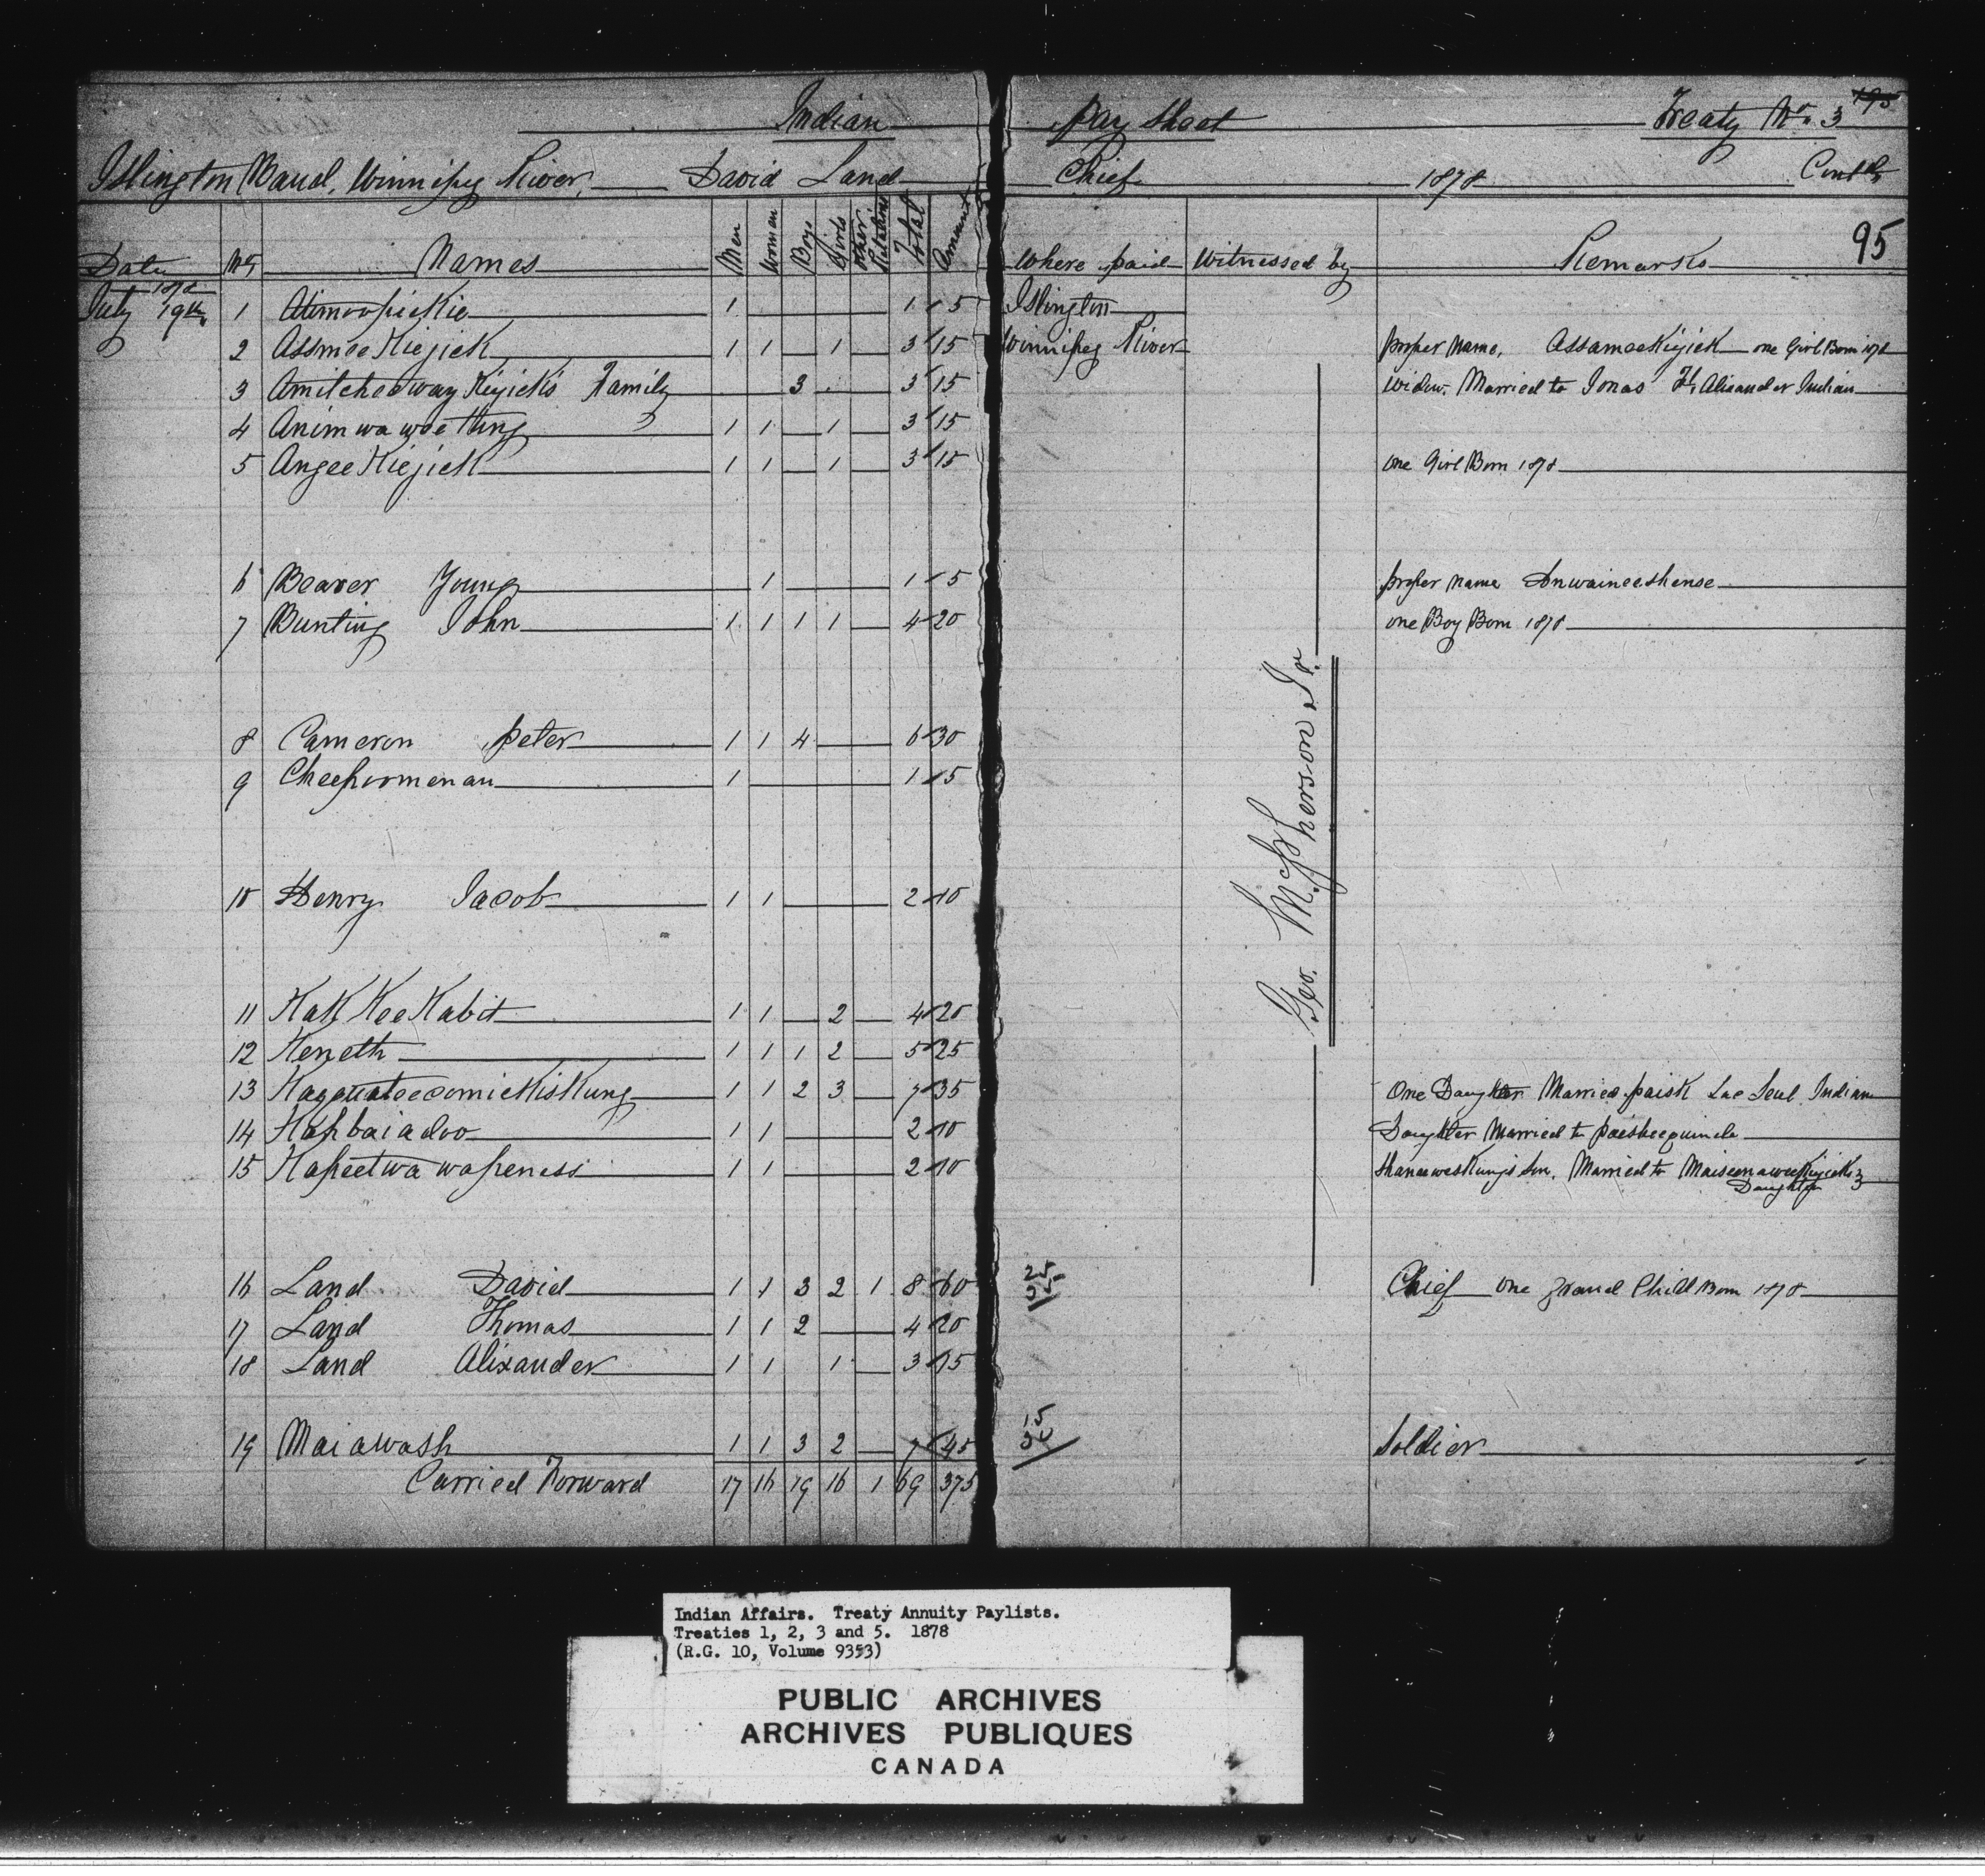 Indian Pay Sheet Treaty No. 3 195
Islington Band, Winnipeg River, David Land Chief 1878 Contd
95
Date No Names Men Women Boys Girls Other Relations Total Amount Where paid Witnessed by Remarks
1878
July 19th 1 1 1 5 Islington
2 Assmee Kiejick 1 1 1 3 15 Winnipeg River proper name, Assamee Kiyick one Girl Born 1878
3 Amitcheeway Kiyick's Family 3 3 15 Widow. Married to Jonas Ft Alixander Indian
4 Animwawoe thing 1 1 1 3 15
5 Angee Kiejick 1 1 1 3 15 one Girl Born 1878
6 Beaver Young 1 1 5 proper name
7 Bunting John 1 1 1 1 4 20 one Boy Born 1878
8 Cameron Peter 1 1 4 6 30
9 Cheepoomenan 1 1 5
Geo. McPherson Jr.
10 Henry Jacob 1 1 2 10
11 Kak Kee Kabit 1 1 2 4 20
12 Keneth 1 1 1 2 5 25
13 1 1 2 3 7 35 One Daughter Married paisk Lac Seul Indian
14 Kahbaiadoo 1 1 2 10 Daughter Married to
15 Kapeetwa wapeness 1 1 2 10 Shaneweskung's Son. Married to
Daughter
16 Land David 1 1 3 2 1 8 60 25 35 Chief one grand Child Born 1878
17 Land Thomas 1 1 2 4 20
18 Land Alixander 1 1 1 3 15
19 Maiawash 1 1 3 2 7 45 15 Soldier
Carried Forward 17 16 19 16 1 69 375
Indian Affairs. Treaty Annuity Paylists.
Treaties 1, 2, 3 and 5. 1878
(R.G. 10, Volume 9353)
PUBLIC ARCHIVES
ARCHIVES PUBLIQUES
CANADA